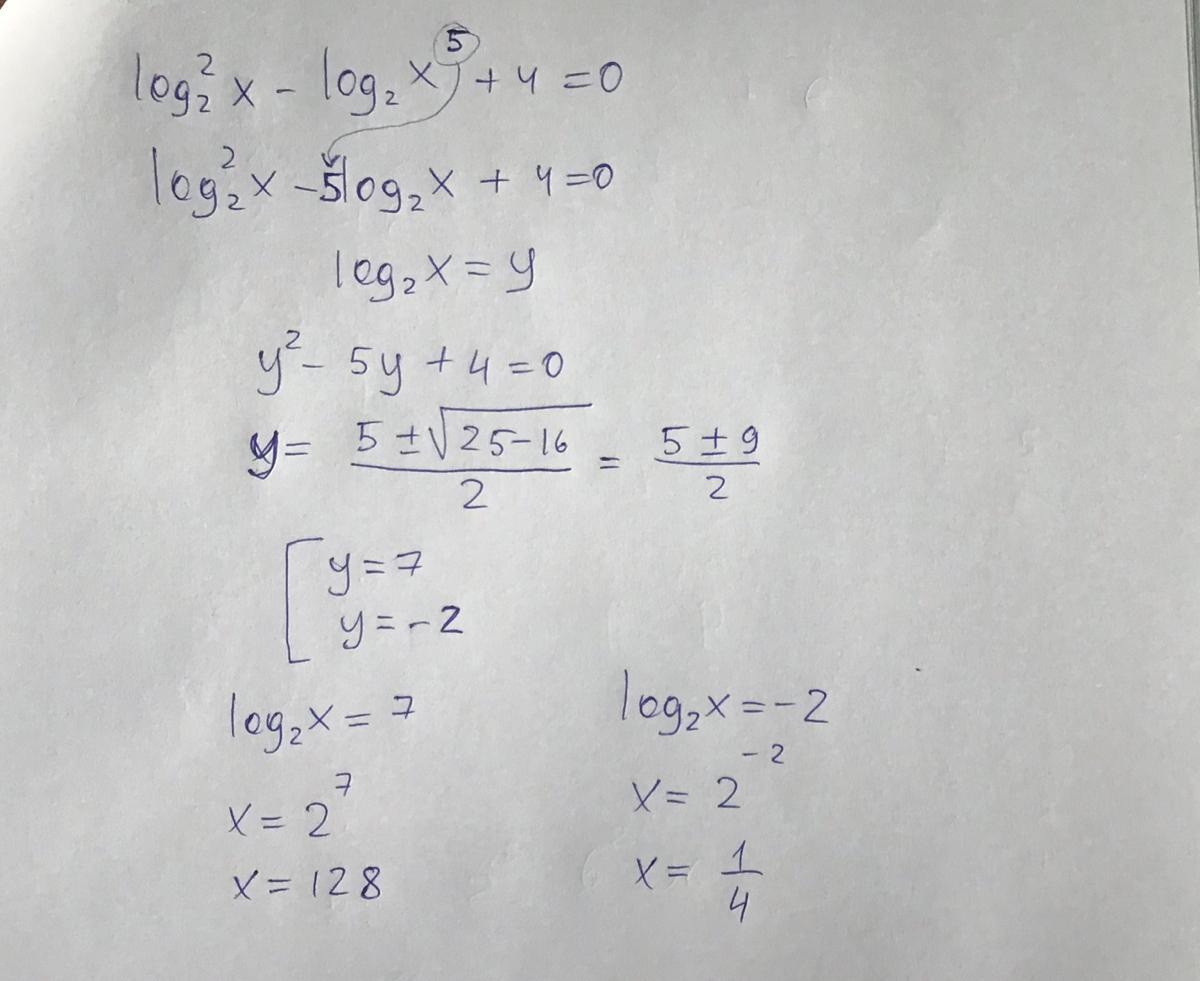 log₂² x - log₂ x⁵ + 4 = 0
log₂² x - 5log₂ x + 4 = 0
log₂ x = y
y² - 5y + 4 = 0
y = (5 ± √(25-16))/2 = (5 ± 9)/2
[ y = 7
y = -2
log₂ x = 7 log₂ x = -2
x = 2⁷ x = 2⁻²
x = 128 x = 1/4